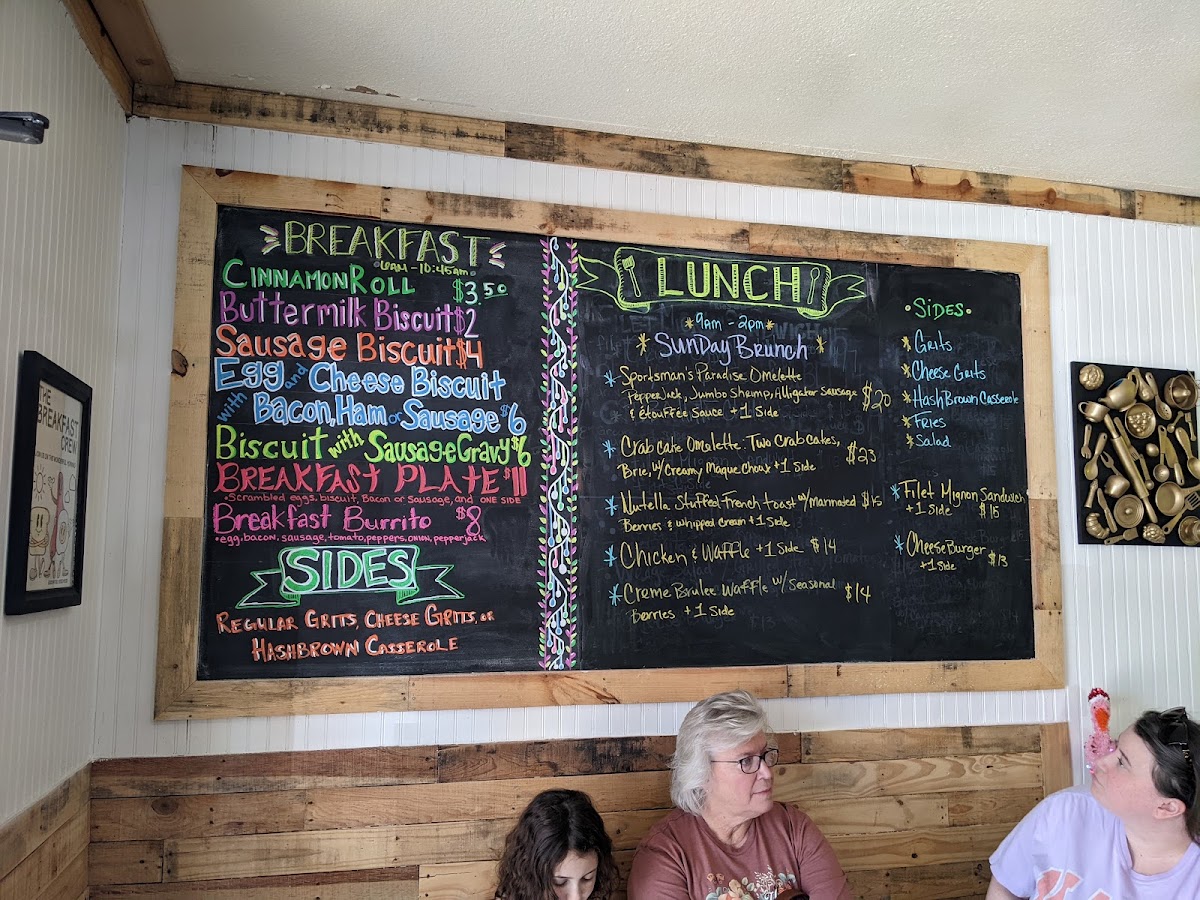 THE
BREAKFAST
CREW
BREAKFAST
6AM - 10:45am
CINNAMON ROLL $3.50
Buttermilk Biscuit $2
Sausage Biscuit $4
Egg and Cheese Biscuit
with Bacon, Ham or Sausage $6
Biscuit with Sausage Gravy $6
BREAKFAST PLATE $11
• Scrambled eggs, biscuit, Bacon or Sausage, and ONE SIDE
Breakfast Burrito $8
• egg, bacon, sausage, tomato, peppers, onion, pepperjack
SIDES
REGULAR GRITS, CHEESE GRITS, OR
HASHBROWN CASSEROLE
LUNCH
9am - 2pm
SunDay Brunch
Sportsman's Paradise Omelette
PepperJack, Jumbo Shrimp, Alligator Sausage $20
& étouffée Sauce +1 Side
Crab cake Omelette. Two Crab cakes, $23
Brie, w/ Creamy Maque Choux +1 Side
Nutella Stuffed French toast w/ marinated $15
Berries & whipped cream +1 Side
Chicken & Waffle +1 Side $14
Creme Brulee Waffle w/ Seasonal $14
Berries +1 Side
• SIDES •
Grits
Cheese Grits
HashBrown Casserole
Fries
Salad
Filet Mignon Sandwich
+1 Side
Cheese Burger $13
+1 Side